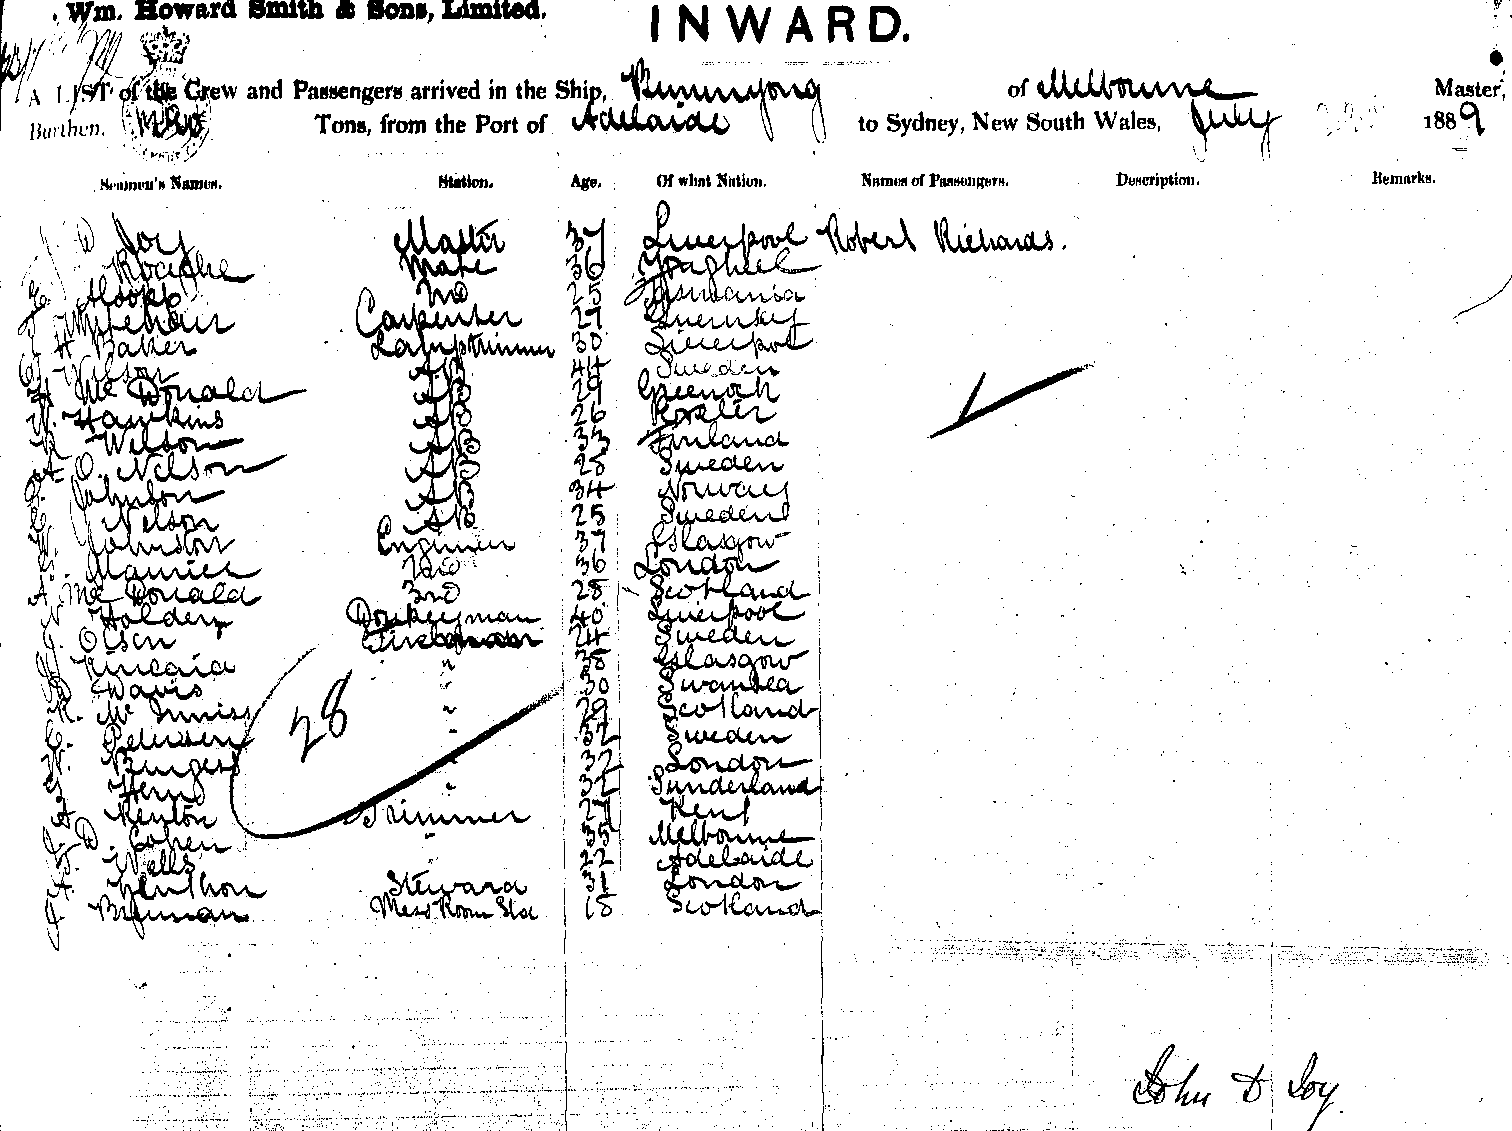 Wm. Howard Smith & Sons, Limited.
INWARD.
A LIST of the Crew and Passengers arrived in the Ship, Buninyong of Melbourne Master,
Burthen, Tons, from the Port of Adelaide to Sydney, New South Wales, July 1889
Seamen's Names. Station. Age. Of what Nation. Names of Passengers. Description. Remarks.
J. D Joy Master 37 Liverpool Robert Richards.
Roache Mate 36
Alsopp 2nd 25 Tasmania
Whitehair Carpenter 27 Guernsey
H Baker Lamptrimmer 30 Liverpool
Wilson AB 44 Sweden
Mc Donald AB 29 Greenock
Hawkins AB 26 Exeter
Wilson AB 33 Finland
A. O. Nelson AB 28 Sweden
Johnson AB 34 Norway
C. Nelson AB 25 Sweden
Johnston Engineer 37 Glasgow
Maurice 2nd 36 London
A. Mc Donald 3rd 28 Scotland
Holden Donkeyman 40 Liverpool
J. Olsen Fireman 24 Sweden
Kincaid " 38 Glasgow
Davis " 30 Swansea
R. Mc Inniss " 29 Scotland
C. Petersen " 32 Sweden
Burgess " 32 London
Hern " 32 Sunderland
A. Kenton Trimmer 27 Kent
J. D. Cohen " 35 Melbourne
Wells " 22 Adelaide
A. Steward 31 London
J. Mess Room Std 18 Scotland
28
John D Joy